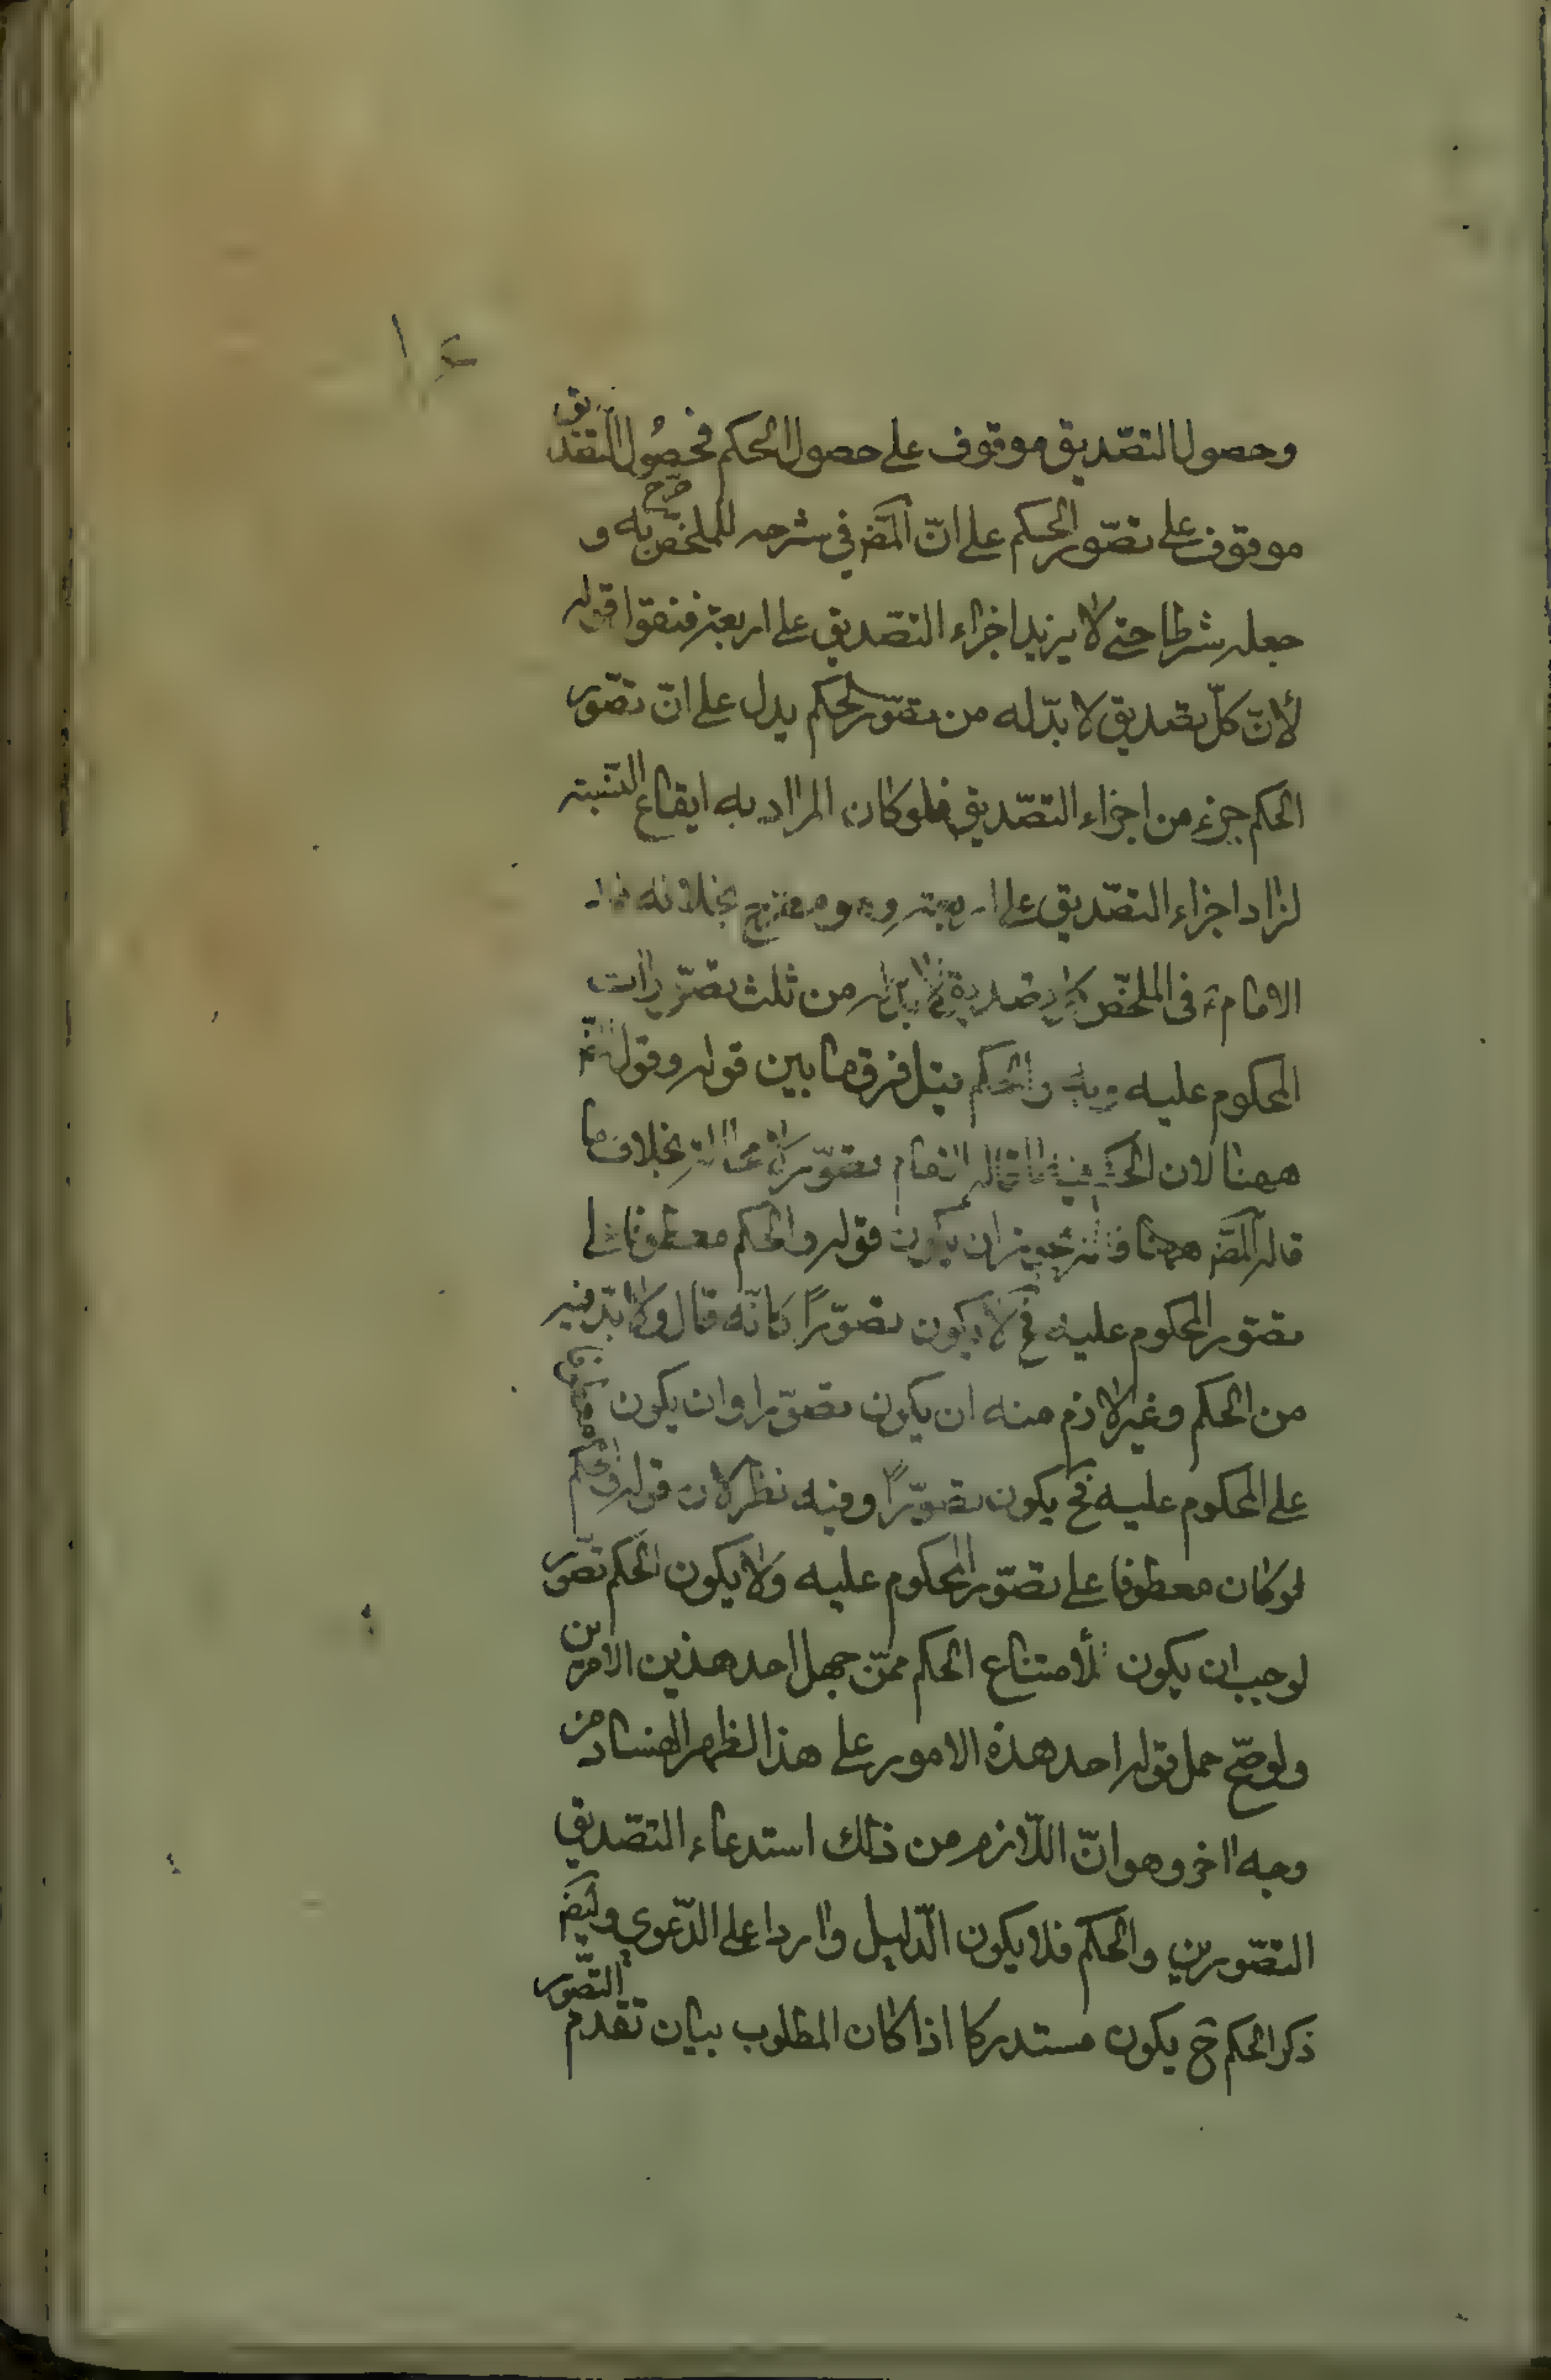 وحصول التصديق موقوف على حصول الحكم فحصول التصديق
موقوف على تصور الحكم على انّ المص في شرحه للملخص صرح به و
جعله شرطا حتى لا يزيد اجزاء التصديق على اربعة فنقول قوله
لأنّ كلّ تصديق لا بدّ له من تصوّر الحكم يدل على انّ تصوّر
الحكم جزء من اجزاء التصديق فلو كان المراد به ايقاع النسبة
لزاد اجزاء التصديق على اربعة وهو مصرح بخلافه قال
الامام في الملخص كل تصديق لا بد له من ثلث تصورات
المحكوم عليه وبه والحكم قيل فرق ما بين قوله وقوله
ههنا لان الحكم فيما قاله الامام تصور لا محالة بخلاف ما
قاله المص ههنا فانه يجوز ان يكون قوله والحكم معطوفا على
تصور المحكوم عليه فح لا يكون تصوّرًا كانّه قال ولا بدّ فيه
من الحكم وغير لازم منه ان يكون تصوّرا وان يكون
على المحكوم عليه فح يكون تصوّرًا وفيه نظر لان قوله والحكم
لو كان معطوفا على تصوّر المحكوم عليه ولا يكون الحكم تصوّر
لوجب ان يكون لأمتناع الحكم ممّن جهل احد هذين الامرين
ولو صحّ حمل قوله احد هذه الامور على هذا لظهر الفساد من
وجه اخر وهو انّ اللّازم من ذلك استدعاء التصديق
التصّورين والحكم فلا يكون الدّليل واردا على الدّعوى وليض
ذكر الحكم ح يكون مستدركا اذا كان المطلوب بيان تقدم التصّور